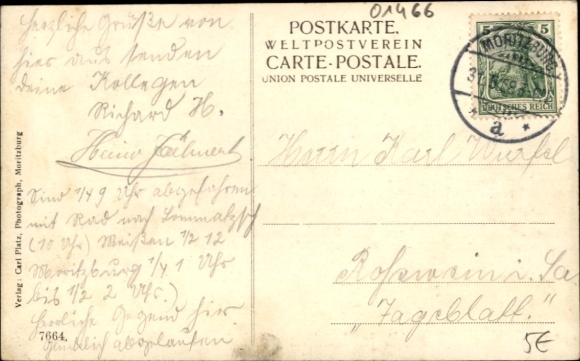 01466
Herzliche Grüße von
hier aus senden
deine Kollegen
Richard H.
Sind 1/4 9 Uhr abgefahren
mit Rad nach Lommatzsch
(10 Uhr) Meißen 1/2 12
Moritzburg 1/4 1 Uhr
bis 1/2 2 Uhr.)
Herrliche Gegend hier
abgelaufen
7664.
Verlag: Carl Platz, Photograph, Moritzburg
POSTKARTE.
WELTPOSTVEREIN
CARTE-POSTALE.
UNION POSTALE UNIVERSELLE
5 5
DEUTSCHES REICH
MORITZBURG
* a *
Herrn Karl Würfel
Roßwein i. Sa
"Tageblatt."
5€